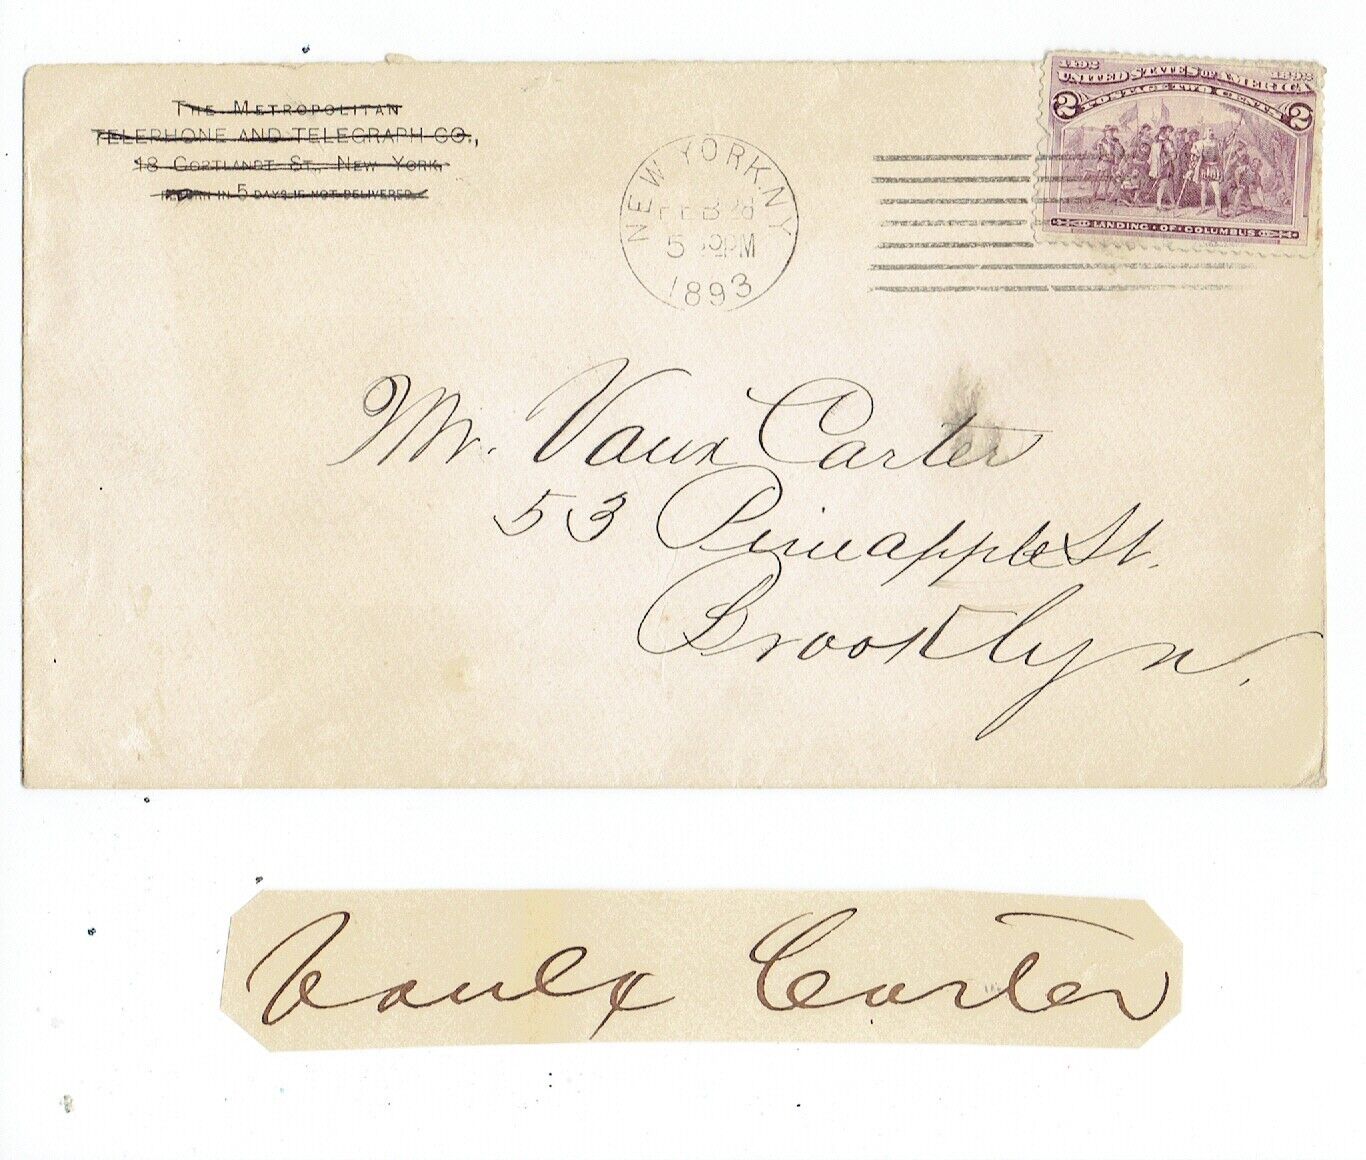 The Metropolitan
Telephone and Telegraph Co.,
18 Cortlandt St., New York.
in 5 days if not delivered.
NEW YORK, N.Y.
FEB 28
5 PM
1893
1492 1892
UNITED STATES OF AMERICA
2 POSTAGE TWO CENTS 2
LANDING OF COLUMBUS
Mr. Vaux Carter
53 Pineapple St.
Brooklyn.
Vaux Carter